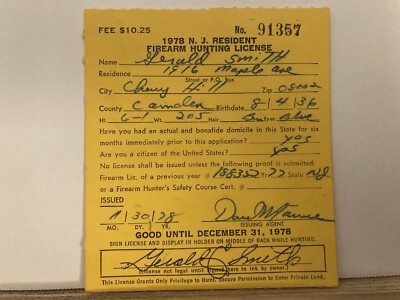 FEE $10.25 No. 91357
1978 N. J. RESIDENT
FIREARM HUNTING LICENSE
Name Gerald Smith
Residence 1916 Maple Ave
Street or P.O. Box
City Cherry Hill Zip 08002
County Camden Birthdate 8-4-36
Ht. 6-1 Wt. 205 Hair Brn Eyes Blue
Have you had an actual and bonafide domicile in this State for six
months immediately prior to this application? yes
Are you a citizen of the United States? yes
No license shall be issued unless the following proof is submitted:
Firearm Lic. of a previous year # 188352 Yr. 77 State NJ
or a Firearm Hunter's Safety Course Cert. #
ISSUED
7/30/78
MO. DAY YR. ISSUING AGENT
GOOD UNTIL DECEMBER 31, 1978
SIGN LICENSE AND DISPLAY IN HOLDER ON MIDDLE OF BACK WHILE HUNTING.
Gerald C Smith
(License not legal until signed here in ink by owner.)
This License Grants Only Privilege to Hunt. Secure Permission to Enter Private Land.